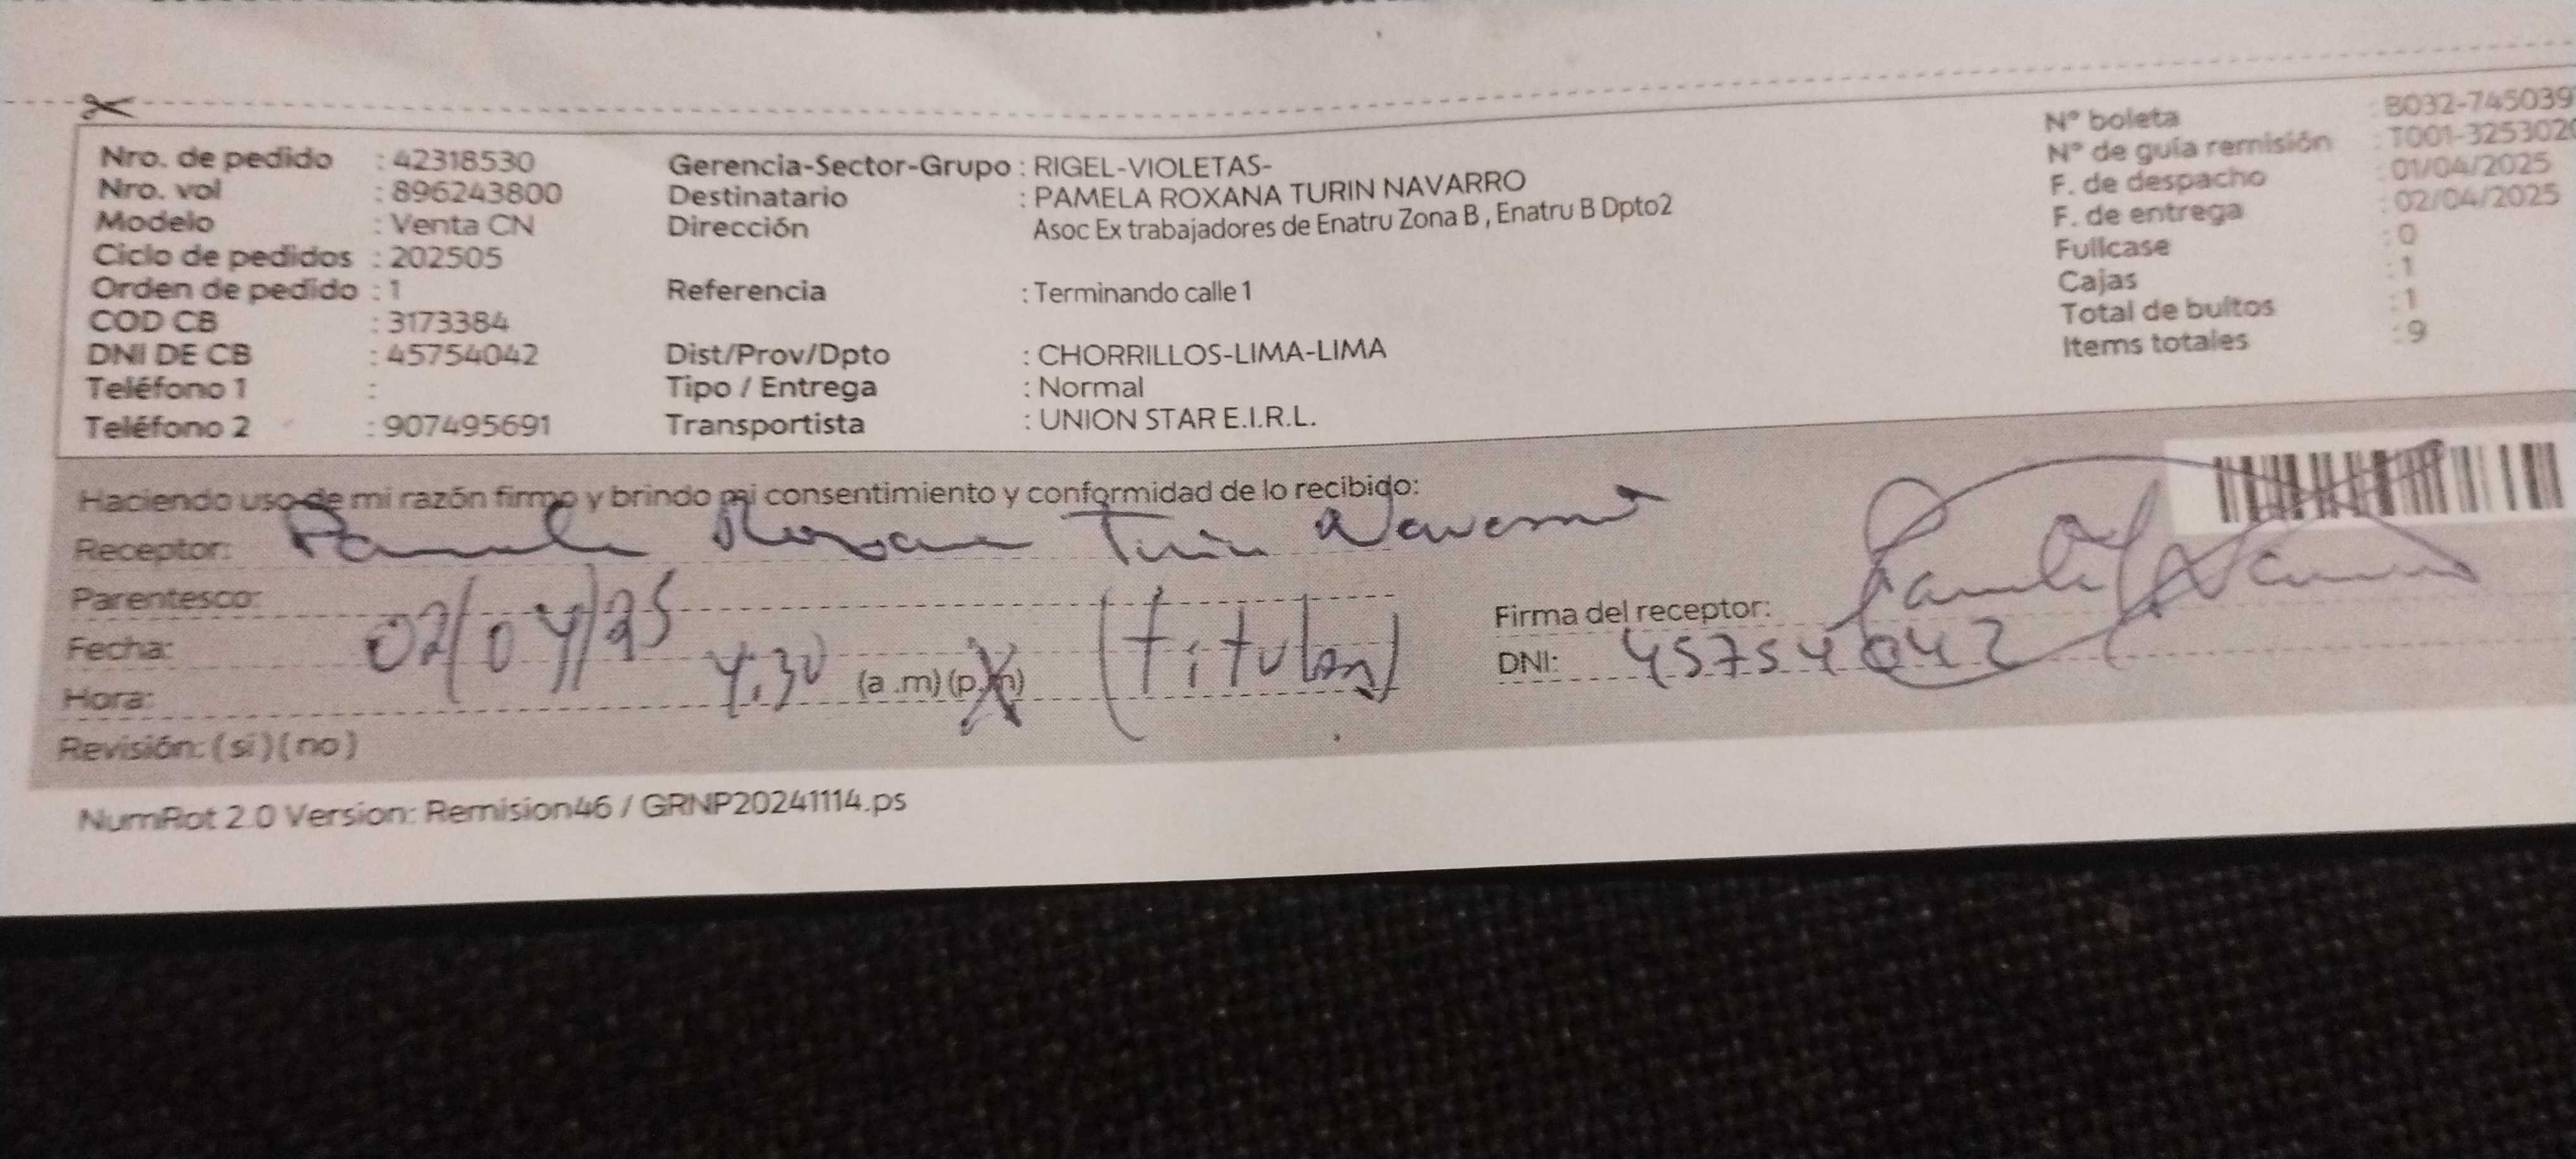 Nro. de pedido : 42318530
Nro. vol : 896243800
Modelo : Venta CN
Ciclo de pedidos : 202505
Orden de pedido : 1
COD CB : 3173384
DNI DE CB : 45754042
Teléfono 1 :
Teléfono 2 : 907495691
Gerencia-Sector-Grupo : RIGEL-VIOLETAS-
Destinatario : PAMELA ROXANA TURIN NAVARRO
Dirección Asoc Ex trabajadores de Enatru Zona B , Enatru B Dpto2
Referencia : Terminando calle 1
Dist/Prov/Dpto : CHORRILLOS-LIMA-LIMA
Tipo / Entrega : Normal
Transportista : UNION STAR E.I.R.L.
N° boleta : B032-745039
N° de guía remisión : T001-325302
F. de despacho : 01/04/2025
F. de entrega : 02/04/2025
Fullcase : 0
Cajas : 1
Total de bultos : 1
Items totales : 9
Haciendo uso de mi razón firmo y brindo mi consentimiento y conformidad de lo recibido:
Receptor: Pamela Roxana Turin Navarro
Parentesco:
Fecha: 02/04/25
Hora: 4:30 (a .m) (p.m) (titular)
Revisión: (si) (no)
Firma del receptor:
DNI: 45754042
NumRot 2.0 Version: Remision46 / GRNP20241114.ps